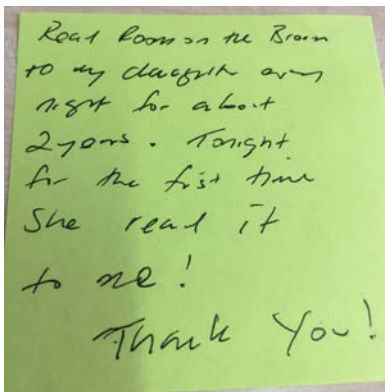 Read Room on the Broom
to my daughter every
night for about
2 years. Tonight
for the first time
She read it
to me!
Thank You!